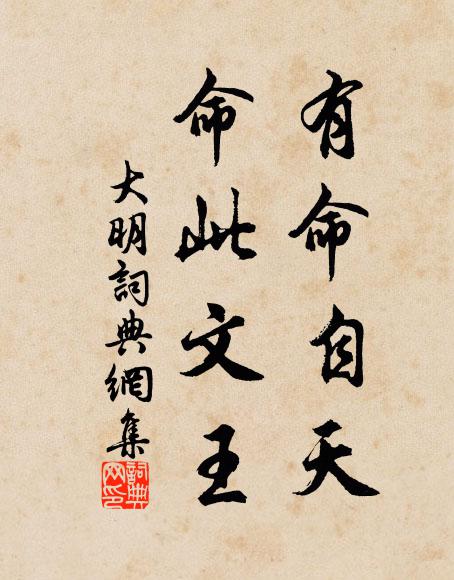 有命自天
命此文王
大明詞典網集
詞典
网印